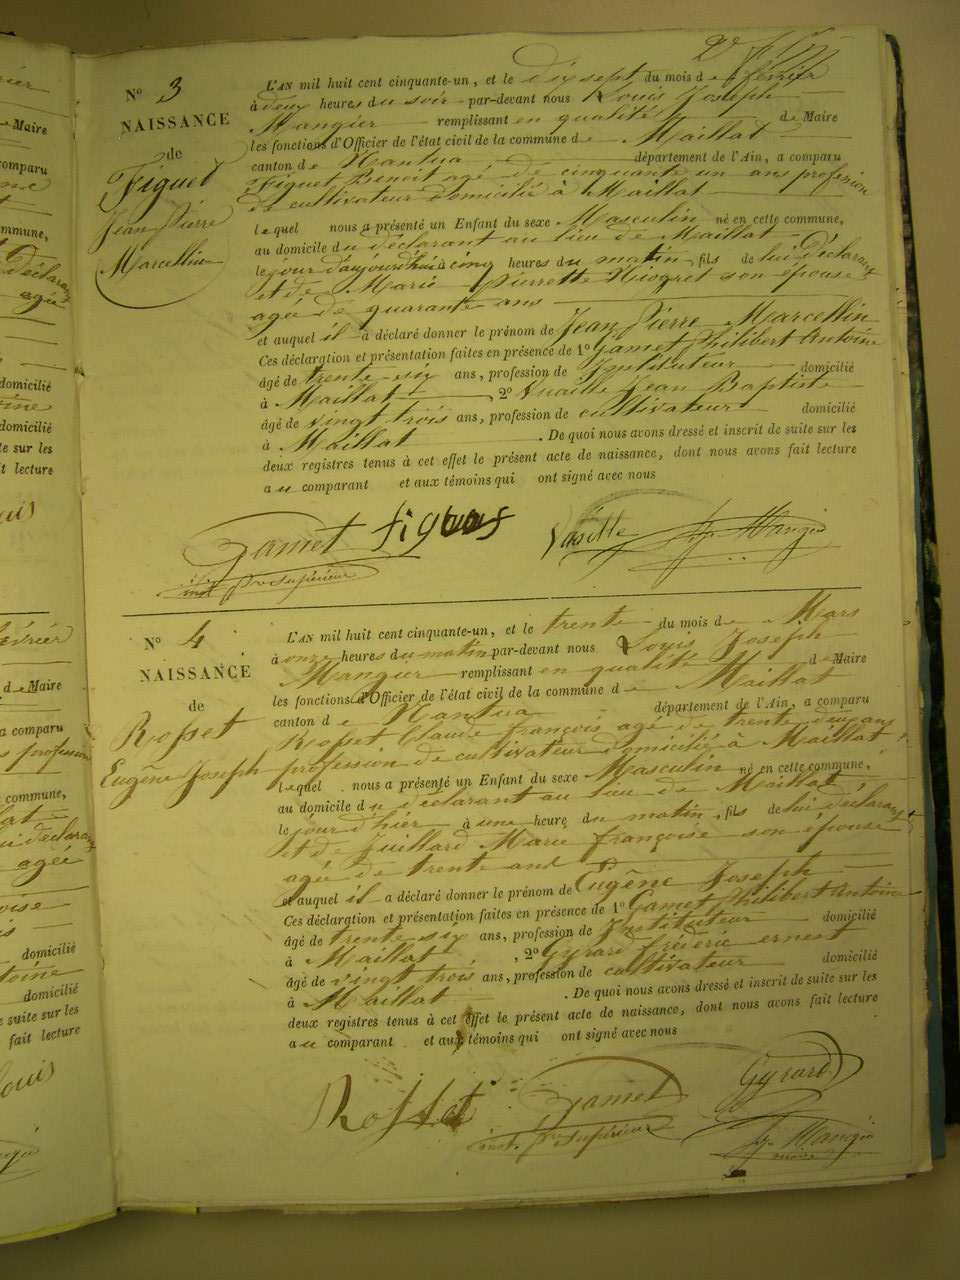 N° 3
NAISSANCE
de
Figuet
Jean Pierre
Marcellin
L'AN mil huit cent cinquante-un, et le dix sept du mois de février
à deux heures du soir par-devant nous Louis Joseph
Mangier remplissant en qualité de Maire
les fonctions d'Officier de l'état civil de la commune de Maillat
canton de Nantua département de l'Ain, a comparu
Figuet Benoit agé de cinquante un ans profession
de cultivateur domicilié à Maillat
lequel nous a présenté un Enfant du sexe Masculin né en cette commune,
au domicile du déclarant au lieu de Maillat
le jour d'aujourd'hui à cinq heures du matin, fils de lui Déclarant
et de Marie Pierrette Niogret son épouse
agée de quarante ans
et auquel il a déclaré donner le prénom de Jean Pierre Marcellin
Ces déclaration et présentation faites en présence de 1° Gamet Philibert Antoine
âgé de trente six ans, profession de Instituteur domicilié
à Maillat, 2° Vuaille Jean Baptiste
âgé de vingt trois ans, profession de cultivateur domicilié
à Maillat. De quoi nous avons dressé et inscrit de suite sur les
deux registres tenus à cet effet le présent acte de naissance, dont nous avons fait lecture
au comparant et aux témoins qui ont signé avec nous
Gamet
inst. pre supérieur
N° 4
NAISSANCE
de
Rosset
Eugêne Joseph
L'AN mil huit cent cinquante-un, et le trente du mois de Mars
à onze heures du matin par-devant nous Louis Joseph
Mangier remplissant en qualité de Maire
les fonctions d'Officier de l'état civil de la commune de Maillat
canton de Nantua département de l'Ain, a comparu
Rosset Claude françois agé de trente deux ans
profession de cultivateur domicilié à Maillat
lequel nous a présenté un Enfant du sexe Masculin né en cette commune,
au domicile du déclarant au lieu de Maillat
le jour d'hier à une heure du matin, fils de lui déclarant
et de Juillard Marie françoise son épouse
agée de trente ans
et auquel il a déclaré donner le prénom de Eugêne Joseph
Ces déclaration et présentation faites en présence de 1° Gamet Philibert Antoine
âgé de trente six ans, profession de Instituteur domicilié
à Maillat, 2° Gyrard fréderic ernest
âgé de vingt trois ans, profession de cultivateur domicilié
à Maillat. De quoi nous avons dressé et inscrit de suite sur les
deux registres tenus à cet effet le présent acte de naissance, dont nous avons fait lecture
au comparant et aux témoins qui ont signé avec nous
Rosset Gamet Gyrard
inst. pre supérieur
maire